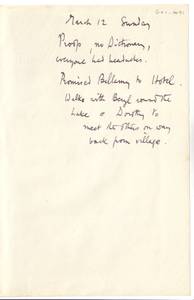 March 12 Sunday
Proofs, no Dictionary,
everyone had headaches.
Promised Bellamy to Hotel.
Walks with Beryl round the
Lake & Dorothy to
meet the others on way
back from village.